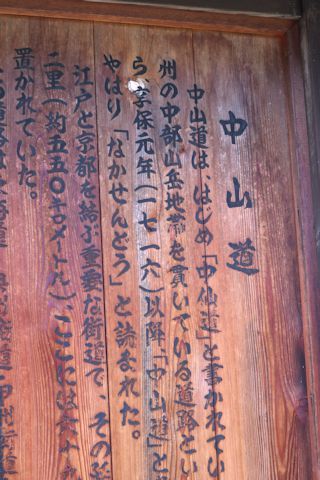 中山道
中山道は、はじめ「中仙道」と書かれてい
州の中部山岳地帯を貫いている道路とい
ら、享保元年(一七一六)以降「中山道」と
やはり「なかせんどう」と読まれた。
江戸と京都を結ぶ重要な街道で、その
二里(約五五〇キロメートル)、ここには六十九
置かれていた。